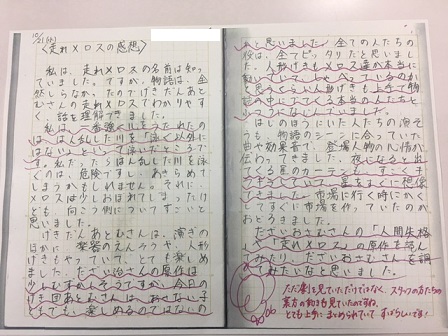 10/21(水)
〈走れメロスの感想〉
私は、走れメロスの名前は知っ
ていました。ですが、物語は、全
然しらなかったのでげきだんあと
むさんの走れメロスでわかりやす
く、話を理解できました。
私は一番強く心をうたれたの
は、はんらんした川を「泳ぐ以外に
はない」といって泳いだところで
す。私だったらはんらんした川を泳
ぐのは、危険ですし、あきらめて
しまうかもしれません。それに、
メロスは少しおぼれてしまったけ
ども、向こう側についてすごいと
思いました。
げきだんあとむさんは、演ぎの
ほかに、楽器のえんそうや、人形
げきもやっていて、とても楽しめ
ました。だざい治さんの原作は
少しむずかしそうですが、今日の
げき団あとむさんは、おさない子
でもとても楽しめるのではない
かと思いました。全ての人たちの
役は、全てピッタリだと思いまし
た。人形げきもメロス達が本当に
動いていてしゃべっているのか
と思うくらい人形げきも上手で物
語の中にでてくる本当の人たちと
はないのほうにいた人たちの演そ
うも、物語のシーンに合っていた
曲や効果音で、登場人物の心情が
伝わってきました。夜になると出
てくる星のカーテンも、すごくき
れいにできていて、星をすぐに想像
できました。市場に行く時にかく
してすぐに市場を作っていたのが
おどろきました。
だざいおさむさんの「人間失格」
や「走れメロス」の原作を読ん
でみたり、だざいおさむさんを調べ
てみたいなと思いました。
ただ劇を見ていただけではなく、スタッフの方たちの
裏方の動きも見ていたのですね。
とても上手にまとめられていてすばらしいです!